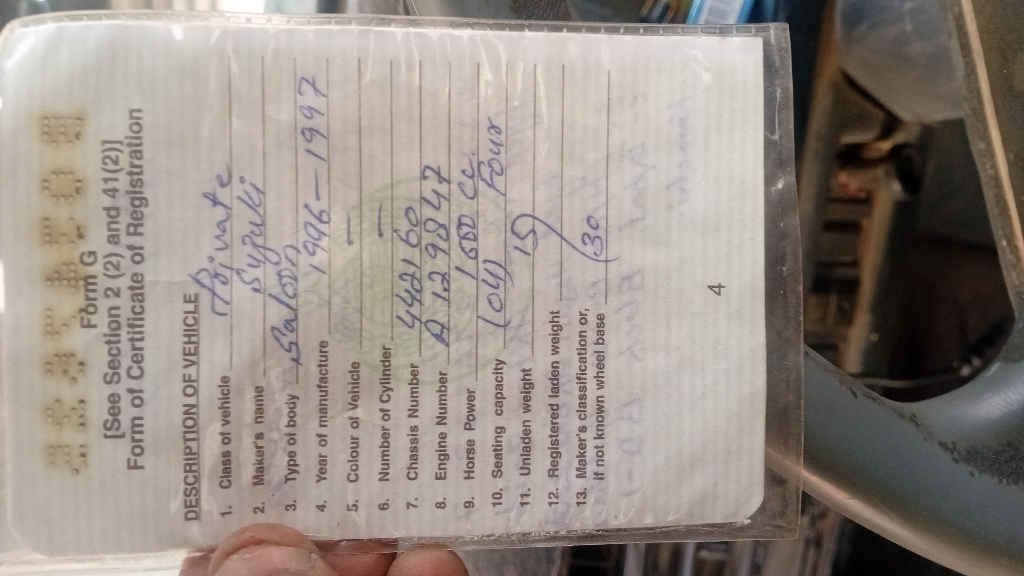 Form G
[See Section 2 (2) and 41(2)]
Form of Certificate of Registration
DESCRIPTION OF VEHICLE
1. Class of vehicle Private
2. Maker's name Suzuki
3. Type of body Saloon
4. Year of manufacture 1996-1997
5. Colour of Vehicle —
6. Number of Cylinder —
7. Chassis Number 442160
8. Engine Number A 129847
9. Horse Power 1600 CC.
10. Seating capacity (04) Four
11. Unladen weight
12. Registered laden weight
13. Maker's classification or,
if not known wheel base
4